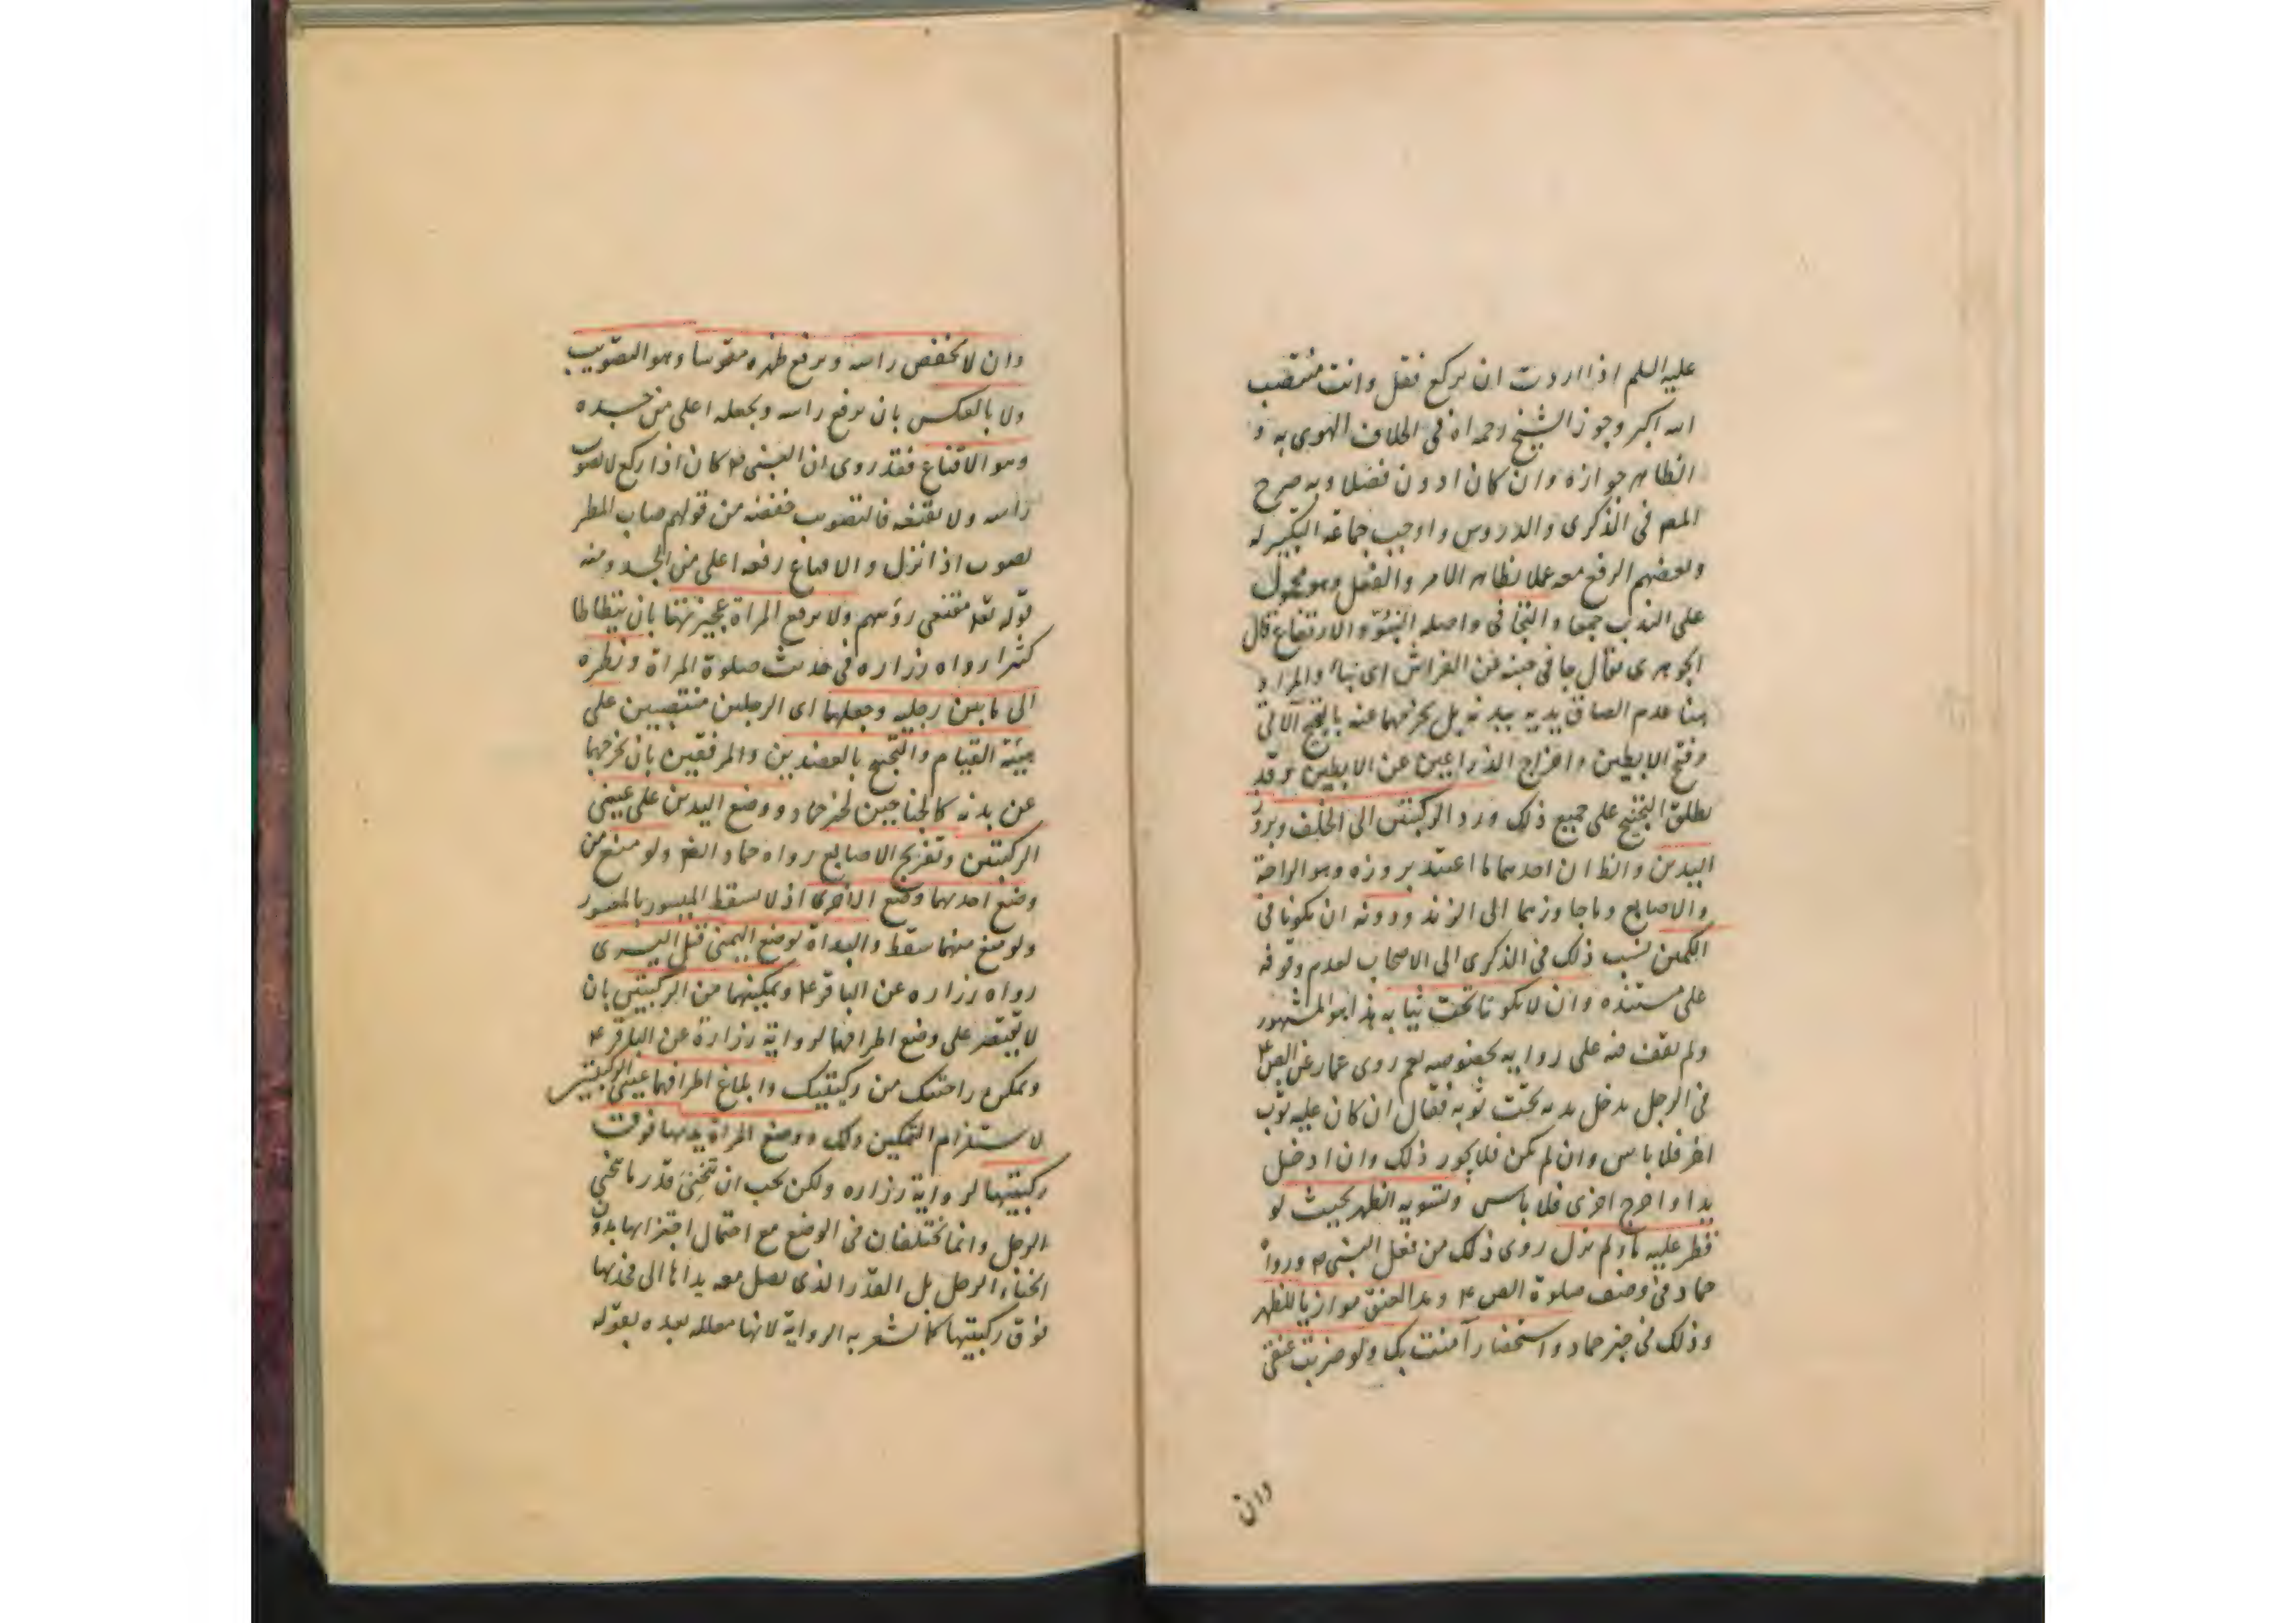 عليه السلم اذا اردت ان تركع فقل وانت منتصب
الله اكبر وجوز الشيخ رحمه الله في الخلاف الهوى به و
الظاهر جوازه وان كان ادون فضلا وبه صرح
المص في الذكرى والدروس واوجب جماعة التكبير له
وبعضهم الرفع معه عملا بظاهر الامر والفعل وهو محمول
على الندب جمعا والتجافي واصله النبوّ والارتفاع قال
الجوهرى يقال جافى جنبه عن الفراش اى نبا والمراد
هنا عدم الصاق يديه ببدنه بل يخرجهما عنه بالتجنيح الآتي
وفتح الابطين واخراج الذراعين عن الابطين وقد
يطلق التجنيح على جميع ذلك ورد الركبتين الى الخلف وبروز
اليدين والظ ان احدهما ما اعتيد بروزه وهو الراحة
والاصابع وما جاوزهما الى الزند ودونه ان يكونا في
الكمين نسب ذلك في الذكرى الى الاصحاب لعدم وقوفه
على مستنده وان لا يكونا تحت ثيابه هذا هو المشهور
ولم نقف فيه على رواية بخصوصه نعم روى عمار عن الص ع
في الرجل يدخل يديه تحت ثوبه فقال ان كان عليه ثوب
اخر فلا باس وان لم يكن فلا يجوز ذلك وان ادخل
يدا واخرج اخرى فلا باس وتسوية الظهر بحيث لو
قطر عليه ماء لم يزل روى ذلك من فعل النبي ص ورواه
حماد في وصف صلوة الص ع ومد العنق موازيا للظهر
وذلك في خبر حماد واستحضار آمنت بك ولو ضربت عنقي
وان
وان لا يخفض راسه ويرفع ظهره مقوسا وهو التصويب
ولا بالعكس بان يرفع راسه ويجعله اعلى من جسده
وهو الاقناع فقد روى ان النبي ص كان اذا ركع لا يصوب
راسه ولا يقنعه فالتصويب خفضه من قولهم صاب المطر
يصوب اذا نزل والاقناع رفعه اعلى من الجسد ومنه
قوله تعه مقنعى رؤسهم ولا ترفع المراة عجيزتها بان يتطاطا
كثيرا رواه زراره في حديث صلوة المراة ونظره
الى ما بين رجليه وجعلهما اى الرجلين منتصبين على
هيئة القيام والتجنيح بالعضدين والمرفقين بان يخرجهما
عن بدنه كالجناحين لخبر حماد ووضع اليدين على عينى
الركبتين وتفريج الاصابع رواه حماد ايضا ولو منع من
وضع احدهما وضع الاخرى اذ لا يسقط الميسور بالمعسور
ولو منع منهما سقط والبداة بوضع اليمنى قبل اليسرى
رواه زراره عن الباقر ع وتمكينهما من الركبتين بان
لا يقتصر على وضع اطرافهما لرواية زرارة عن الباقر ع
وتمكن راحتيك من ركبتيك وابلاغ اطرافهما عينى الركبتين
لاستلزام التمكين ذلك ووضع المراة يديها فوق
ركبتيها لرواية زراره ولكن يجب ان تنحنى قدر ما ينحنى
الرجل وانما يختلفان في الوضع مع احتمال اجتزائها بدون
انحناء الرجل بل القدر الذى يصل معه يداها الى فخذيها
فوق ركبتيها كما يشعر به الرواية لانها معللة بعده بقوله